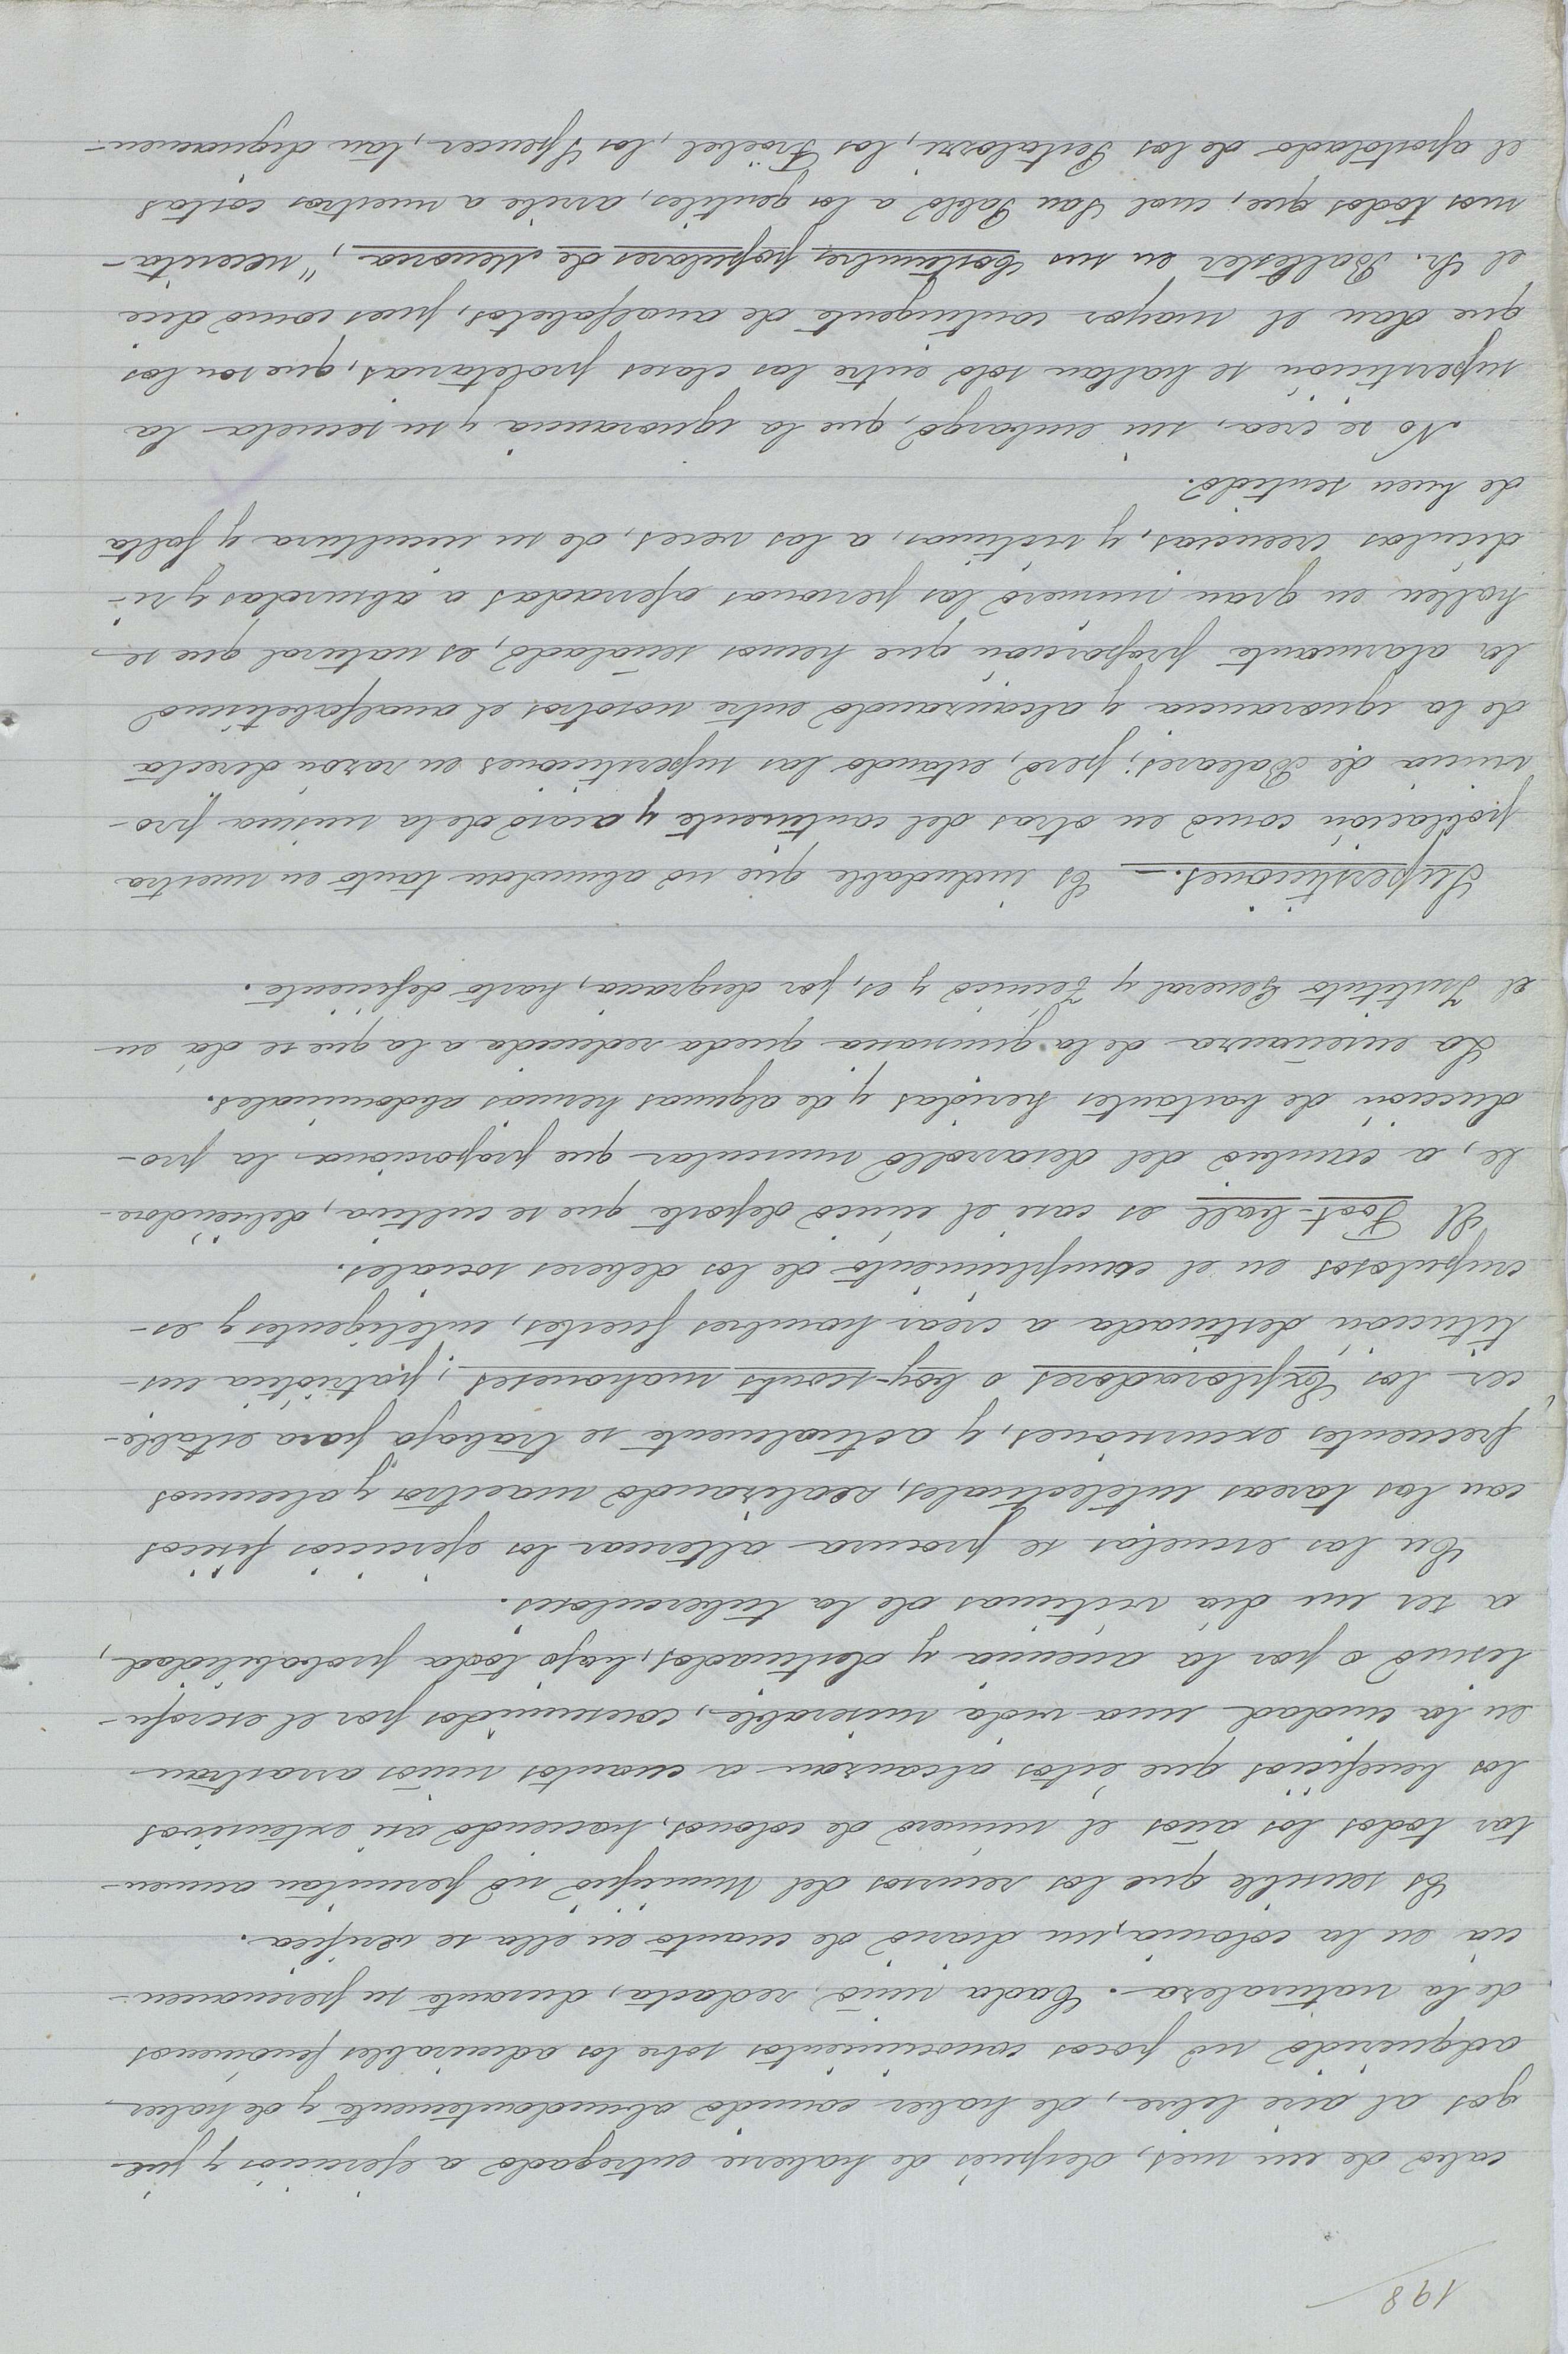 198
cabo de un mes, después de haberse entregado a ejercicios y jue-
gos al aire libre, de haber comido abundantemente y de haber
adquirido no pocos conocimientos sobre los admirables fenómenos
de la naturaleza. Cada niño, redacta, durante su permanen-
cia en la colonia, un diario de cuanto en ella se verifica.
Es sensible que los recursos del Municipio no permitan aumen-
tar todos los años el número de colonos, haciendo así extensivos
los beneficios que éstos alcanzan a cuantos niños arrastran
en la ciudad una vida miserable, consumidos por el escrofu-
lismo o por la anemia y destinados, bajo toda probabilidad,
a ser un día víctimas de la tuberculosis.
En las escuelas se procura alternar los ejercicios físicos
con las tareas intelectuales, realizando maestros y alumnos
frecuentes excursiones, y actualmente se trabaja para estable-
cer los Exploradores o boy-scouts mahoneses, patriótica ins-
titución destinada a crear hombres fuertes, inteligentes y es-
crupulosos en el cumplimiento de los deberes sociales.
El Foot-ball es casi el único deporte que se cultiva, debiéndose-
le, a cambio del desarrollo muscular que proporciona la pro-
ducción de bastantes heridas y de algunas hernias abdominales.
La enseñanza de la gimnasia queda reducida a la que se dá en
el Instituto General y Técnico y es, por desgracia, harto deficiente.
Supersticiones.— Es indudable que no abundan tanto en nuestra
población como en otras del continente y acaso de la misma pro-
vincia de Baleares; pero, estando las supersticiones en razón directa
de la ignorancia y alcanzando entre nosotros el analfabetismo
la alarmante proporción que hemos señalado, es natural que se
hallen en gran número las personas aferradas a absurdas y ri-
dículas creencias, y víctimas, a las veces, de su incultura y falta
de buen sentido.
No se crea, sin embargo, que la ignorancia y su secuela la
superstición se hallan solo entre las clases proletarias, que son las
que dan el mayor contingente de analfabetos, pues como dice
el Sr. Ballester en sus Costumbres populares de Menorca, "necesita-
mos todos que, cual San Pablo a los gentiles, arribe a nuestras costas
el apostolado de los Pestalozzi, los Fröebel, los Spencer, tan dignamen-